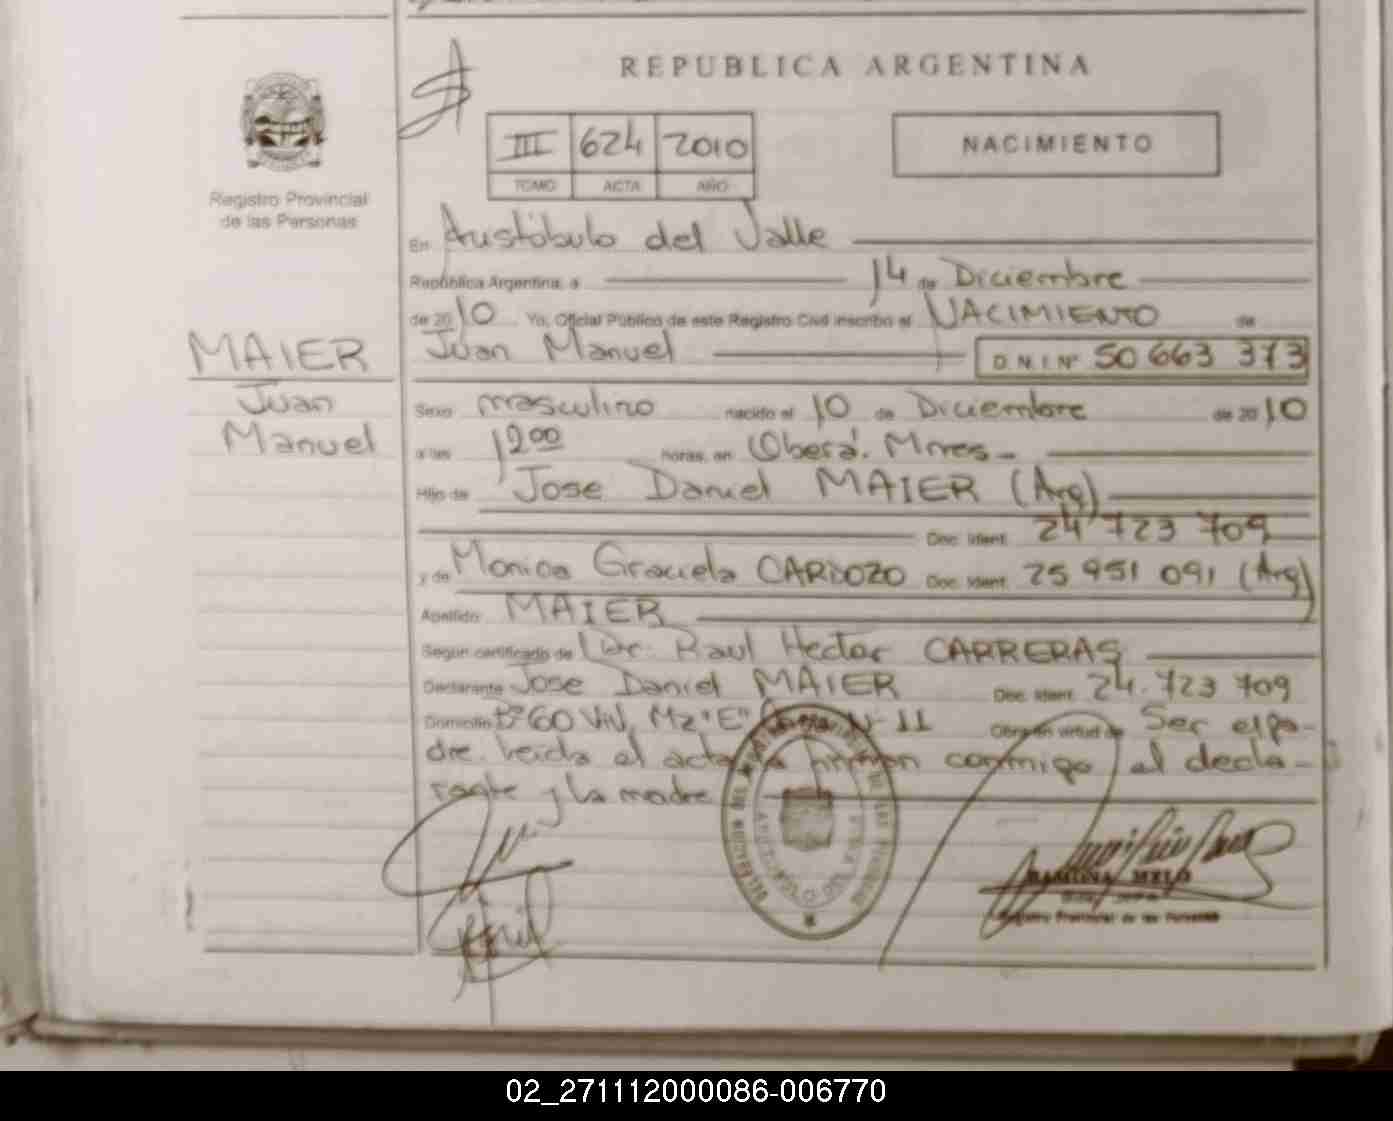 REPUBLICA ARGENTINA
III 624 2010
TOMO ACTA AÑO
NACIMIENTO
Registro Provincial
de las Personas
MAIER
Juan
Manuel
En Aristóbulo del Valle
República Argentina, a 14 de Diciembre
de 2010 Yo, Oficial Público de este Registro Civil inscribo el NACIMIENTO de
Juan Manuel D.N.I. Nº 50 663 373
Sexo masculino nacido el 10 de Diciembre de 2010
a las 12 00 horas, en Oberá. Mnes.
Hijo de Jose Daniel MAIER (Arg)
Doc. Ident. 24 723 709
y de Monica Graciela CARDOZO Doc. Ident. 25 951 091 (Arg)
Apellido MAIER
Según certificado de Dr. Raul Hector CARRERAS
Declarante Jose Daniel MAIER Doc. Ident. 24.723 709
Domicilio Bº 60 Viv, Mz "E" Casa Nº 11 Obra en virtud de Ser el pa-
dre. Leida el acta la firman conmigo, el decla-
rante y la madre
RAMONA MELO
Registro Provincial de las Personas
02_271112000086-006770